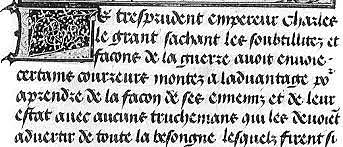 Le tresprudent empereur Charles
le grant sachant les soubtillitez et
facons de la guerre auoit enuoie
certains courreurs montez a laduantage poʳ
aprendre de la facon de ses ennemiz et de leur
estat auec aucuns truchemans qui les deuoiēt
aduertir de toute la besongne lesquelz firent si